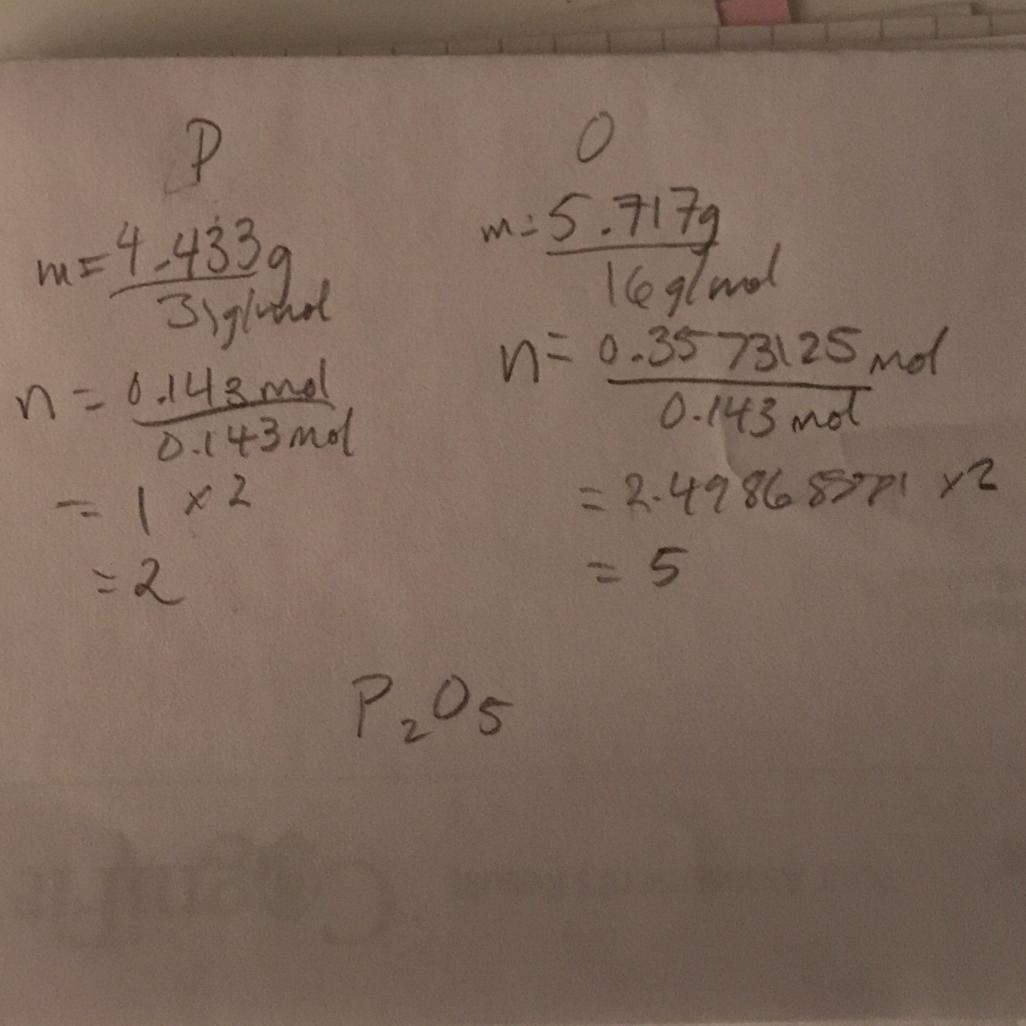 P
m = 4.433g
31g/mol
n = 0.143 mol
0.143 mol
= 1 x 2
= 2
O
m = 5.717g
16 g/mol
n = 0.3573125 mol
0.143 mol
= 2.4986 x 2
= 5
P₂O₅